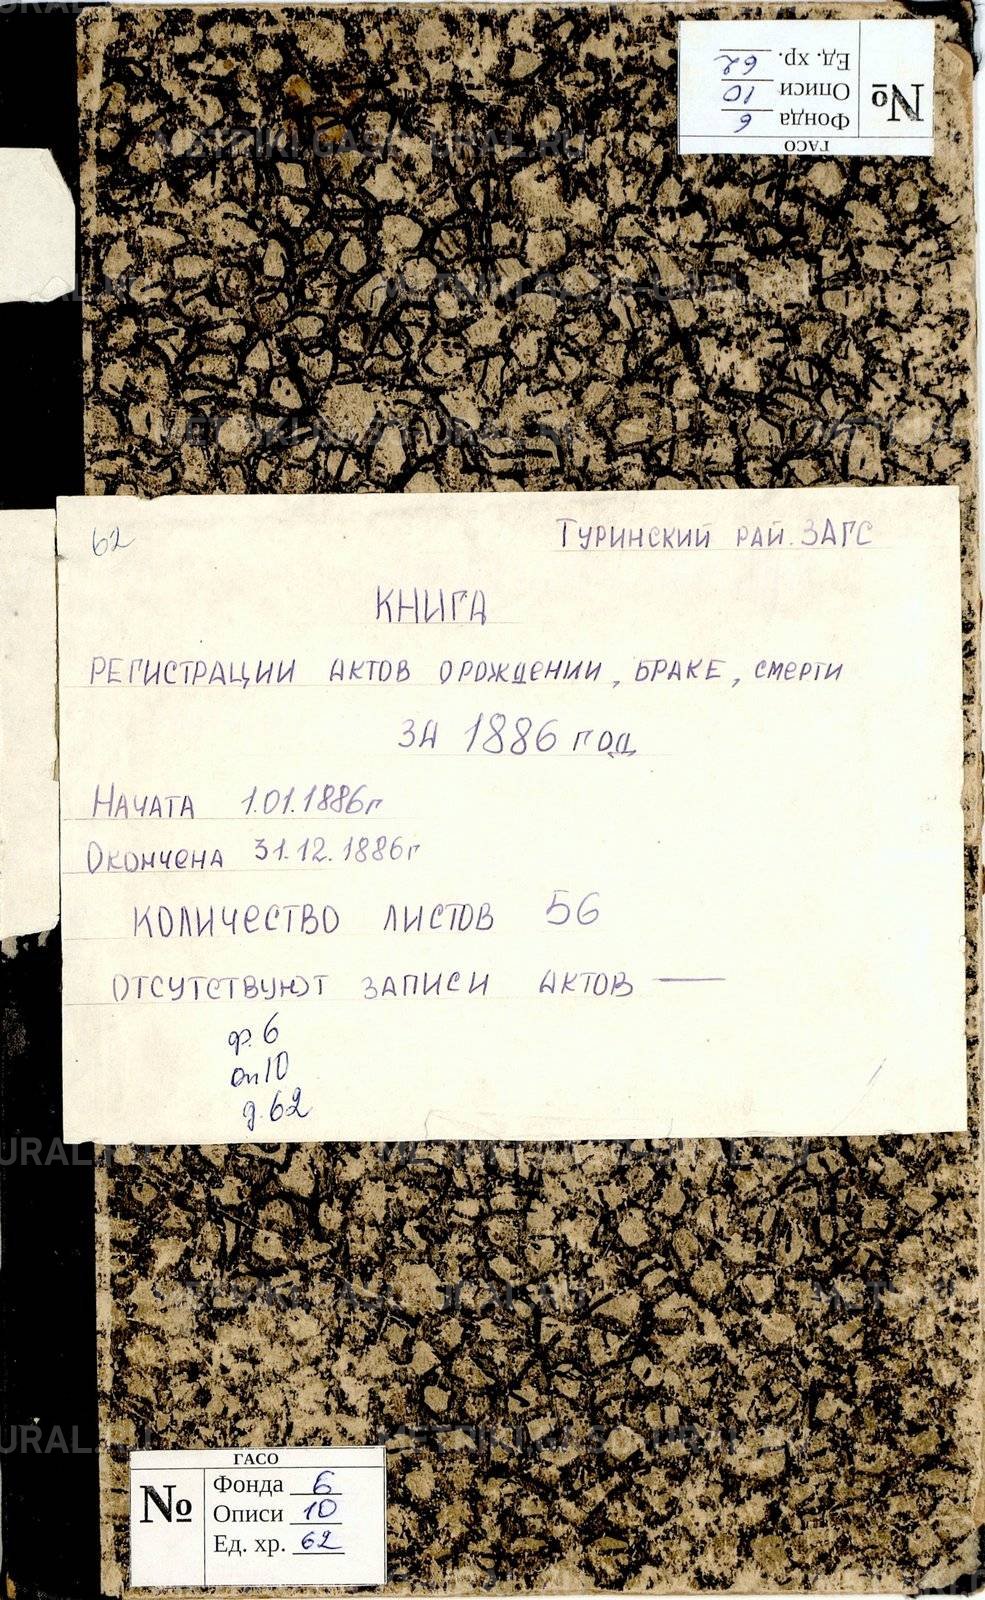 ГАСО
№
Фонда 6
Описи 10
Ед. хр. 62
62
ТУРИНСКИЙ РАЙ. ЗАГС
КНИГА
РЕГИСТРАЦИИ АКТОВ О РОЖДЕНИИ, БРАКЕ, СМЕРТИ
ЗА 1886 ГОД
НАЧАТА 1.01.1886г
ОКОНЧЕНА 31.12.1886г
КОЛИЧЕСТВО ЛИСТОВ 56
ОТСУТСТВУЮТ ЗАПИСИ АКТОВ —
ф. 6
оп 10
д. 62
ГАСО
№
Фонда 6
Описи 10
Ед. хр. 62
METRIKI.GASO-URAL.RU